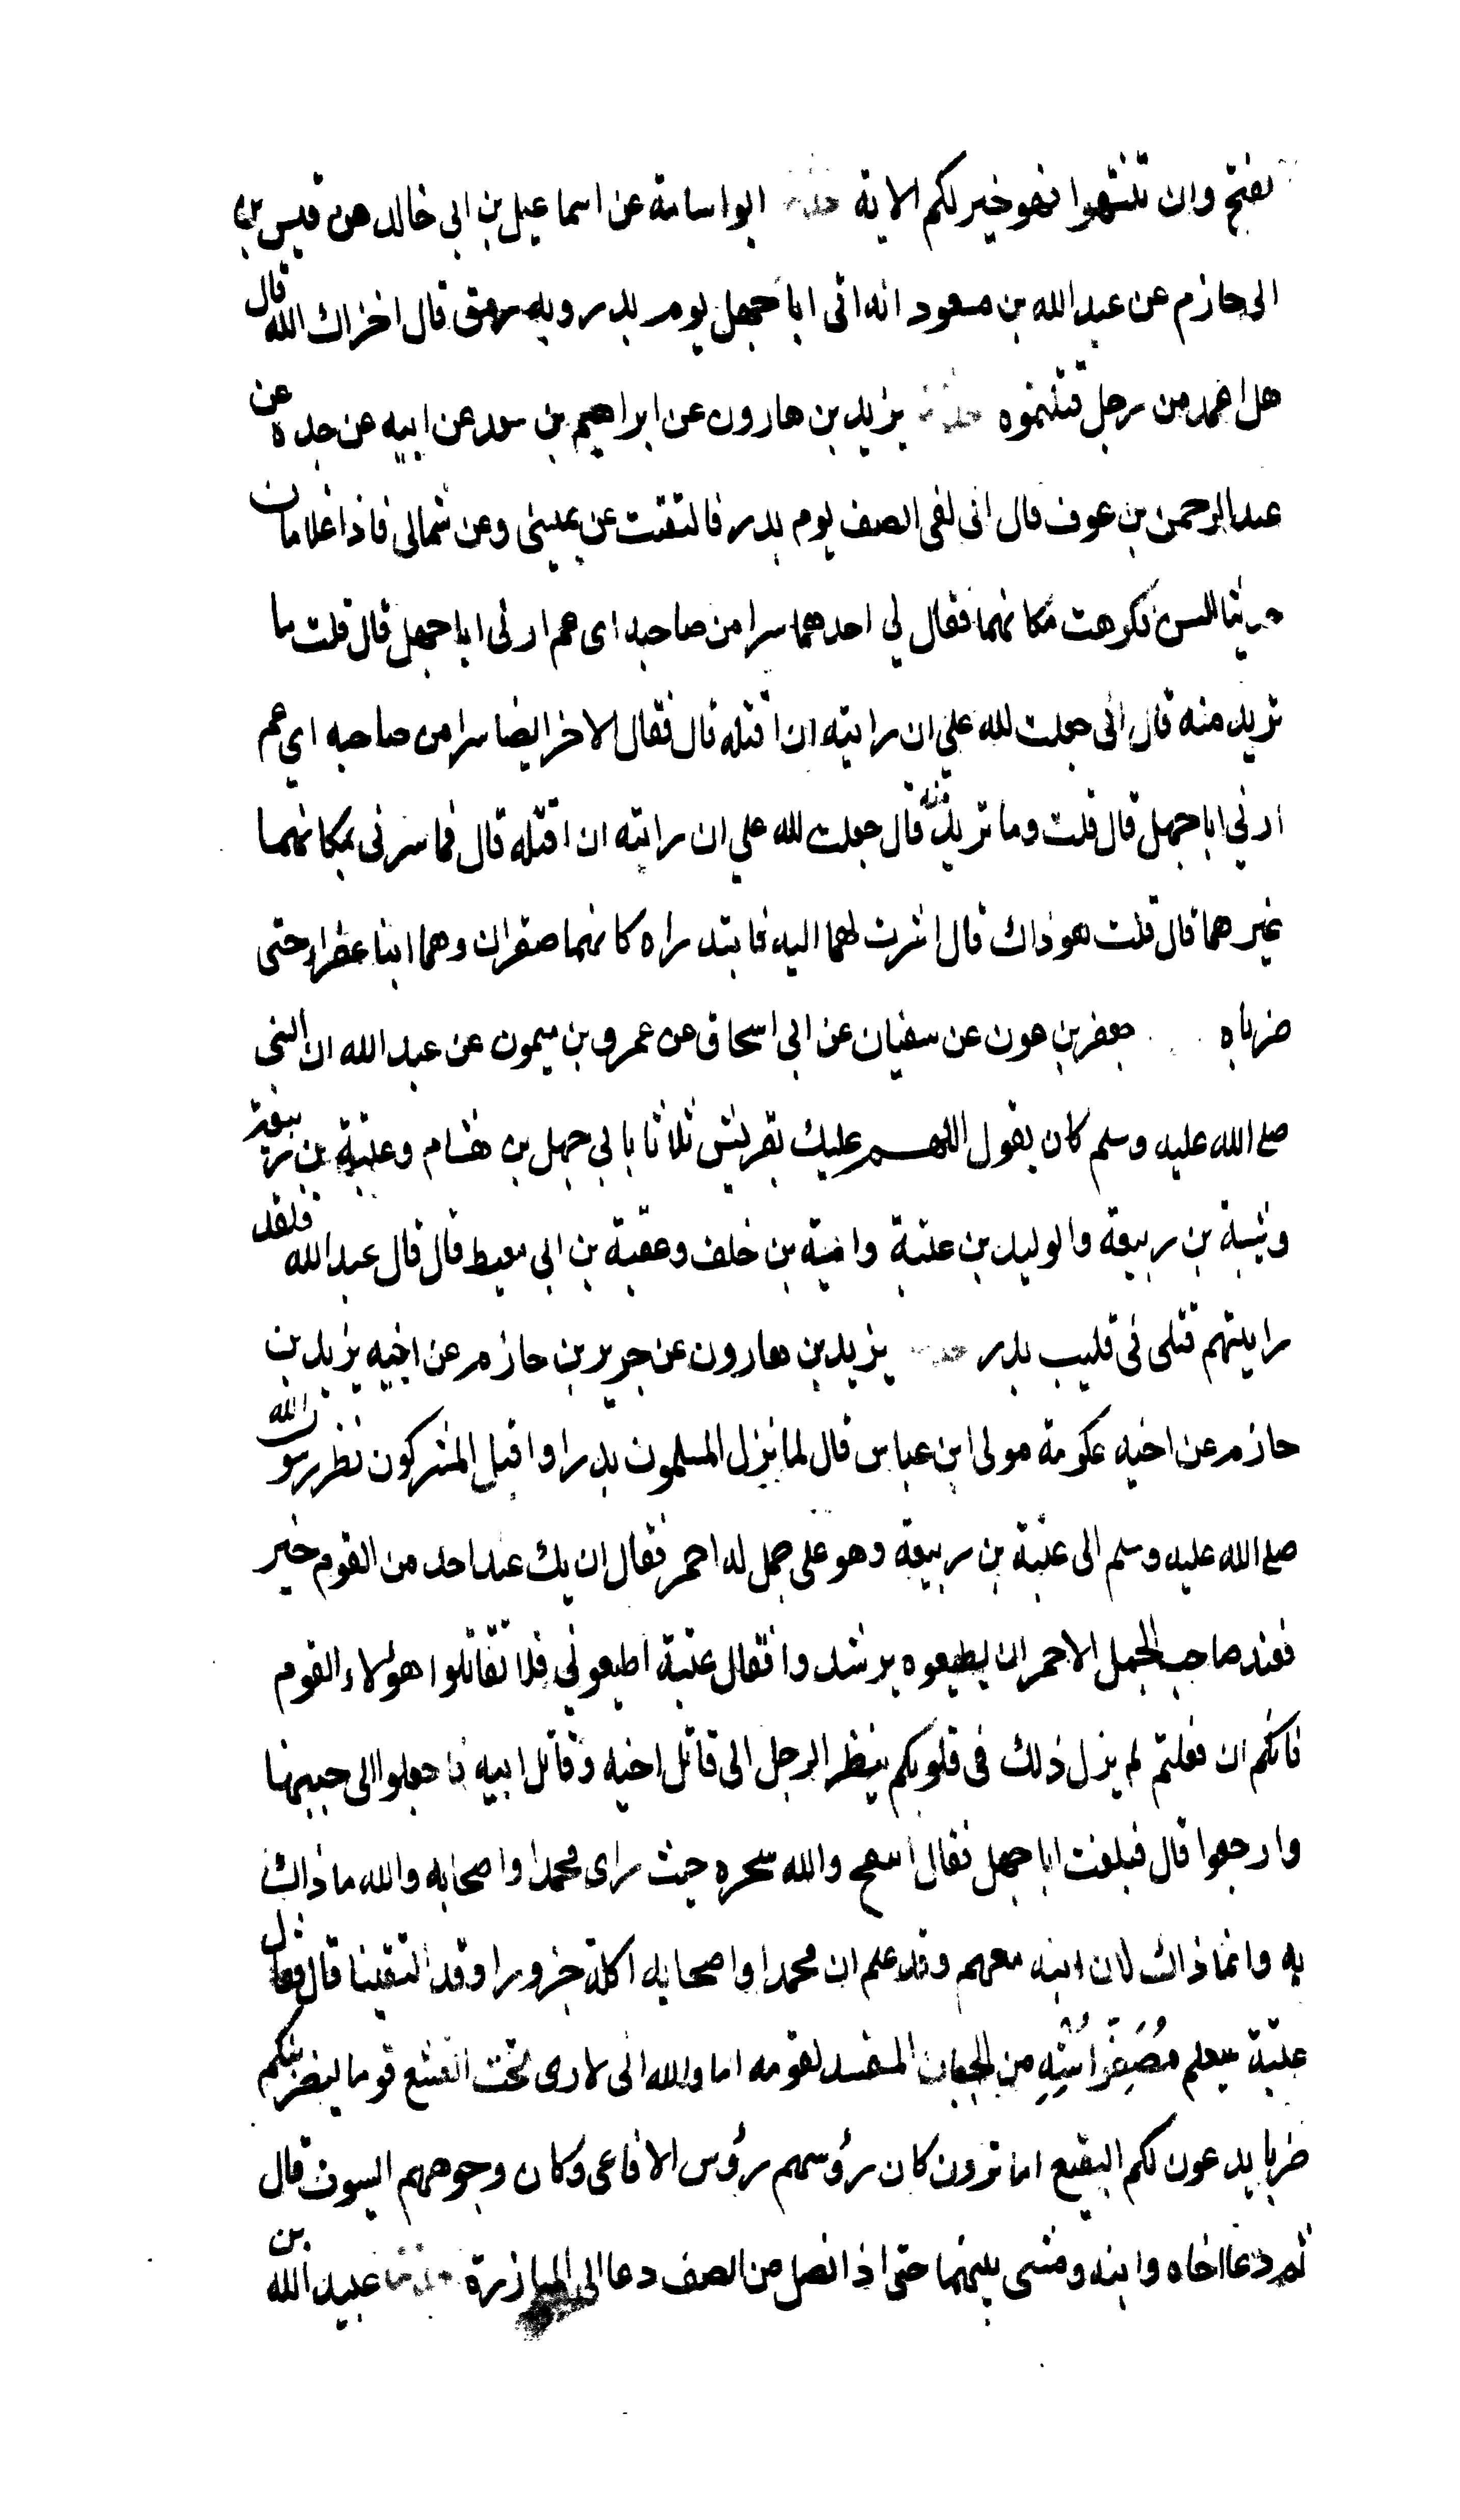 لفتح وان تنتهوا فهو خير لكم الاية حدثنا ابو اسامة عن اسماعيل بن ابي خالد عن قيس بن
ابي حازم عن عبد الله بن مسعود انه اتى ابا جهل يوم بدر وبه رمق قال اخزاك الله قال
هل اعمد من رجل قتلتموه حدثنا يزيد بن هارون عن ابراهيم بن سعد عن ابيه عن جده عن
عبد الرحمن بن عوف قال اني لفي الصف يوم بدر فالتفت عن يميني وعن شمالي فاذا غلامان
حديثا السن فكرهت مكانهما فقال لي احدهما سرا من صاحبه اى عم ارني ابا جهل قال قلت ما
تريد منه قال اني جعلت لله علي ان رايته ان اقتله قال فقال الاخر ايضا سرا من صاحبه اي عم
ارني ابا جهل قال قلت وما تريد منه قال جعلت لله علي ان رايته ان اقتله قال فما سرني بمكانهما
غيرهما قال قلت هو ذاك قال اشرت لهما اليه فابتدراه كانهما صقران وهما ابنا عفراء حتى
ضرباه جعفر بن عون عن سفيان عن ابي اسحاق عن عمرو بن ميمون عن عبد الله ان النبي
صلى الله عليه وسلم كان يقول اللهم عليك بقريش ثلاثا بابي جهل بن هشام وعتبة بن ربيعة
وشيبة بن ربيعة والوليد بن عتبة وامية بن خلف وعقبة بن ابي معيط قال قال عبد الله فلقد
رايتهم قتلى في قليب بدر حدثنا يزيد بن هارون عن جرير بن حازم عن اخيه يزيد بن
حازم عن اخيه عكرمة مولى ابن عباس قال لما نزل المسلمون بدرا واقبل المشركون نظر رسول الله
صلى الله عليه وسلم الى عتبة بن ربيعة وهو على جمل له احمر فقال ان يك عند احد من القوم خير
فعند صاحب الجمل الاحمر ان يطيعوه يرشدوا فقال عتبة اطيعوني فلا تقاتلوا هولاء القوم
فانكم ان فعلتم لم يزل ذلك في قلوبكم ينظر الرجل الى قاتل اخيه وقاتل ابيه فاجعلوا الى جبينها
وارجعوا قال فبلغت ابا جهل فقال انتفخ والله سحره حيث راى محمدا واصحابه والله ما ذاك
به وانما ذاك لان ابنه معهم وقد علم ان محمدا واصحابه اكلة جزور او قد التقينا قال فقال
عتبة سيعلم مُصَفِّرُ اسْتِهِ من الجبان المفسد لقومه اما والله اني لارى تحت القشع قوما ليضربنكم
ضربا يدعون لكم البقيع اما ترون كان رؤسهم رؤس الافاعي وكان وجوههم السيوف قال
ثم دعا اخاه وابنه ومشى بينهما حتى اذا فصل من الصف دعا الى المبارزة حدثنا عبيد الله بن